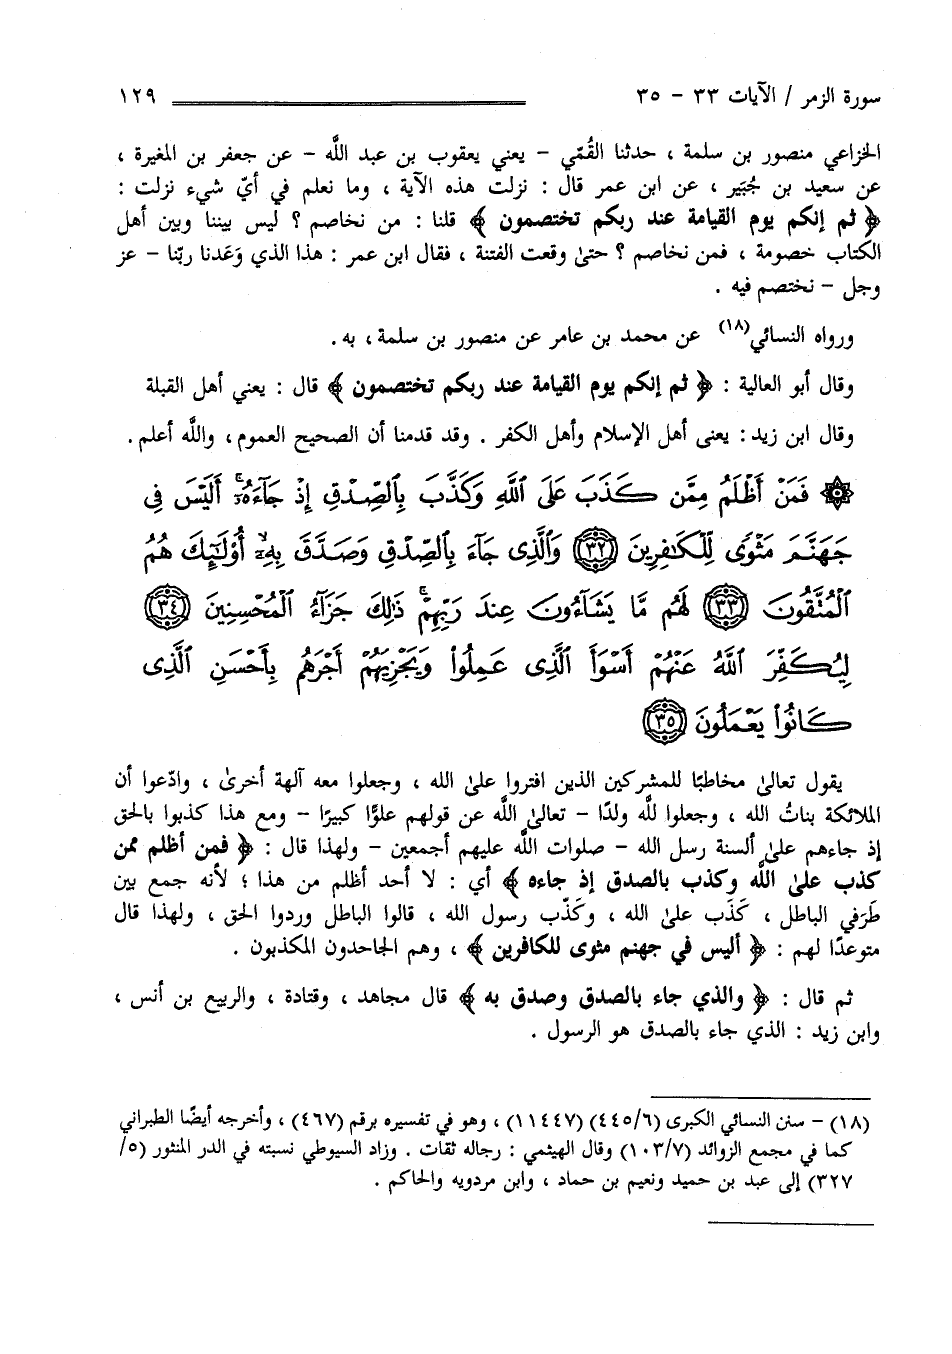 سورة الزمر / الآيات ٣٣ - ٣٥ ١٢٩
الخزاعي منصور بن سلمة ، حدثنا القُمّي - يعني يعقوب بن عبد اللَّه - عن جعفر بن المغيرة ،
عن سعيد بن جُبَير ، عن ابن عمر قال : نزلت هذه الآية ، وما نعلم في أيّ شيء نزلت :
﴿ ثم إنكم يوم القيامة عند ربكم تختصمون ﴾ قلنا : من نخاصم ؟ ليس بيننا وبين أهل
الكتاب خصومة ، فمن نخاصم ؟ حتىٰ وقعت الفتنة ، فقال ابن عمر : هذا الذي وَعَدنا ربّنا - عز
وجل - نختصم فيه .
ورواه النسائي(١٨) عن محمد بن عامر عن منصور بن سلمة ، به .
وقال أبو العالية : ﴿ ثم إنكم يوم القيامة عند ربكم تختصمون ﴾ قال : يعني أهل القبلة
وقال ابن زيد : يعنى أهل الإسلام وأهل الكفر . وقد قدمنا أن الصحيح العموم ، واللَّه أعلم .
۞ فَمَنْ أَظْلَمُ مِمَّن كَذَبَ عَلَى ٱللَّهِ وَكَذَّبَ بِٱلصِّدْقِ إِذْ جَآءَهُۥٓ ۚ أَلَيْسَ فِى
جَهَنَّمَ مَثْوًى لِّلْكَٰفِرِينَ ﴿٣٢﴾ وَٱلَّذِى جَآءَ بِٱلصِّدْقِ وَصَدَّقَ بِهِۦٓ ۙ أُو۟لَٰٓئِكَ هُمُ
ٱلْمُتَّقُونَ ﴿٣٣﴾ لَهُم مَّا يَشَآءُونَ عِندَ رَبِّهِمْ ۚ ذَٰلِكَ جَزَآءُ ٱلْمُحْسِنِينَ ﴿٣٤﴾
لِيُكَفِّرَ ٱللَّهُ عَنْهُمْ أَسْوَأَ ٱلَّذِى عَمِلُوا۟ وَيَجْزِيَهُمْ أَجْرَهُم بِأَحْسَنِ ٱلَّذِى
كَانُوا۟ يَعْمَلُونَ ﴿٣٥﴾
يقول تعالىٰ مخاطبًا للمشركين الذين افتروا علىٰ الله ، وجعلوا معه آلهة أخرىٰ ، وادّعوا أن
الملائكة بناتُ الله ، وجعلوا للَّه ولدًا - تعالىٰ اللَّه عن قولهم علوًّا كبيرًا - ومع هذا كذبوا بالحق
إذ جاءهم علىٰ ألسنة رسل الله - صلوات اللَّه عليهم أجمعين - ولهذا قال : ﴿ فمن أظلم ممن
كذب علىٰ اللَّه وكذب بالصدق إذ جاءه ﴾ أي : لا أحد أظلم من هذا ؛ لأنه جمع بين
طَرَفي الباطل ، كَذَب علىٰ الله ، وكَذّب رسول الله ، قالوا الباطل وردوا الحق ، ولهذا قال
متوعدًا لهم : ﴿ أليس في جهنم مثوى للكافرين ﴾ ، وهم الجاحدون المكذبون .
ثم قال : ﴿ والذي جاء بالصدق وصدق به ﴾ قال مجاهد ، وقتادة ، والربيع بن أنس ،
وابن زيد : الذي جاء بالصدق هو الرسول .
(١٨) - سنن النسائي الكبرى (٤٤٥/٦) (١١٤٤٧) ، وهو في تفسيره برقم (٤٦٧) ، وأخرجه أيضًا الطبراني
كما في مجمع الزوائد (١٠٣/٧) وقال الهيثمي : رجاله ثقات . وزاد السيوطي نسبته في الدر المنثور (٥/
٣٢٧) إلى عبد بن حميد ونعيم بن حماد ، وابن مردويه والحاكم .